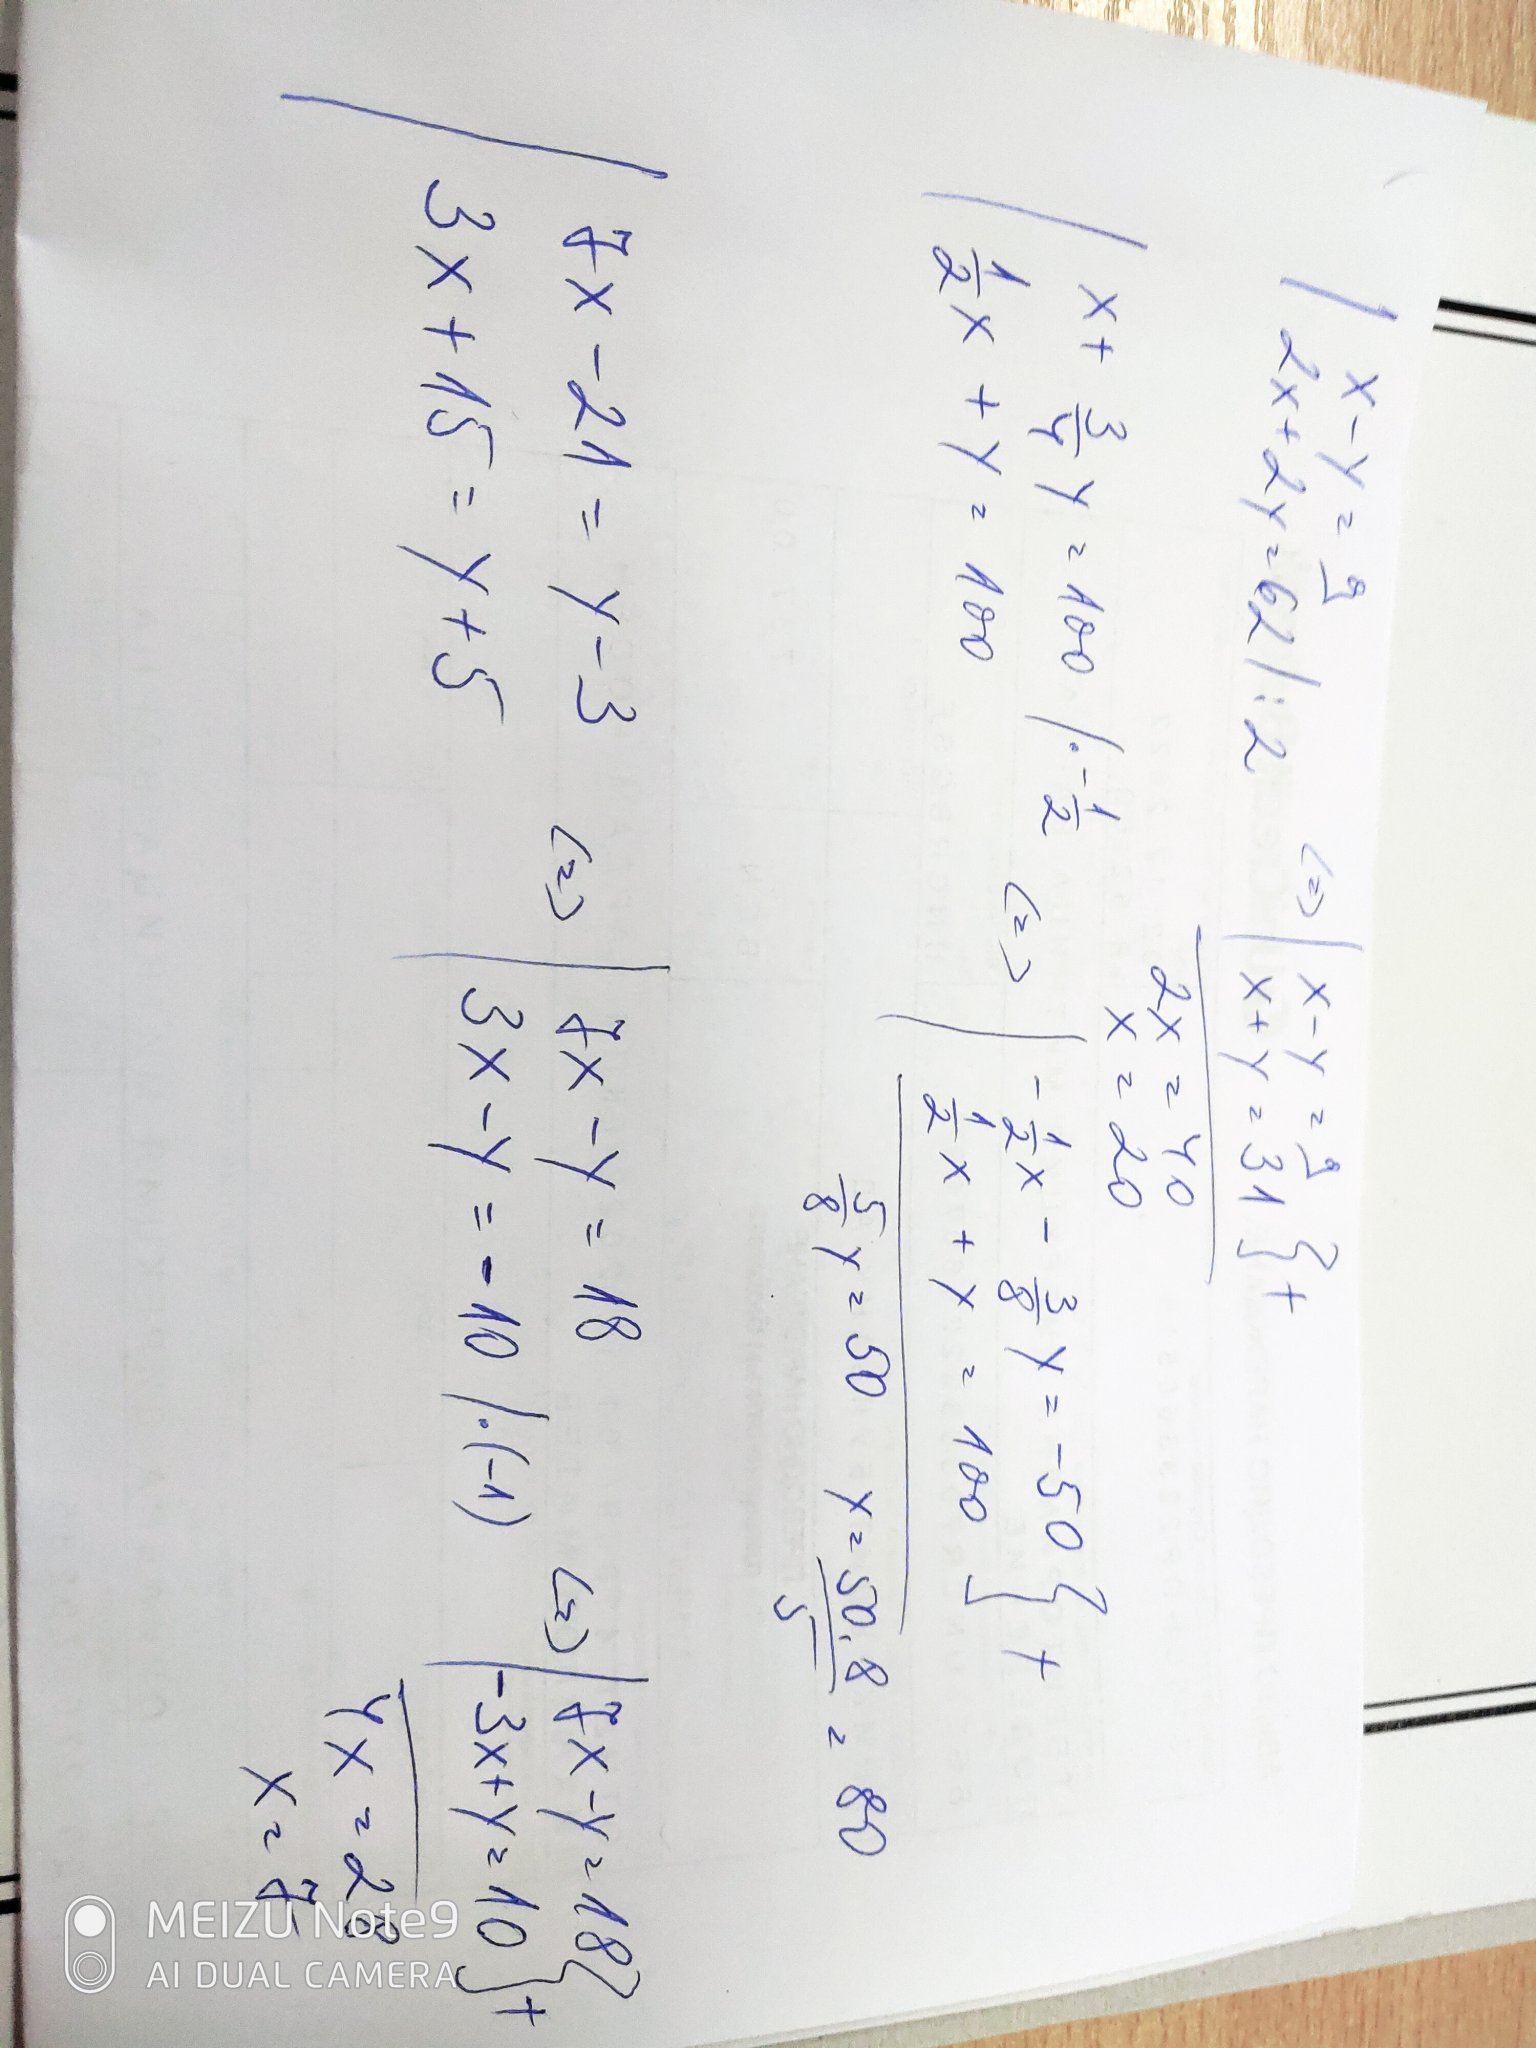 | x - y = 9
2x + 2y = 62 / : 2 <=> | x - y = 9
x + y = 31 } +
2x = 40
x = 20
| x + 3/4 y = 100 / · - 1/2
1/2 x + y = 100 <=> | - 1/2 x - 3/8 y = -50
1/2 x + y = 100 } +
5/8 y = 50 y = 50.8/5 = 80
| 7x - 21 = y - 3
3x + 15 = y + 5 <=> | 7x - y = 18
3x - y = -10 / · (-1) <=> | 7x - y = 18
-3x + y = 10 } +
4x = 28
x = 7
MEIZU Note9
AI DUAL CAMERA